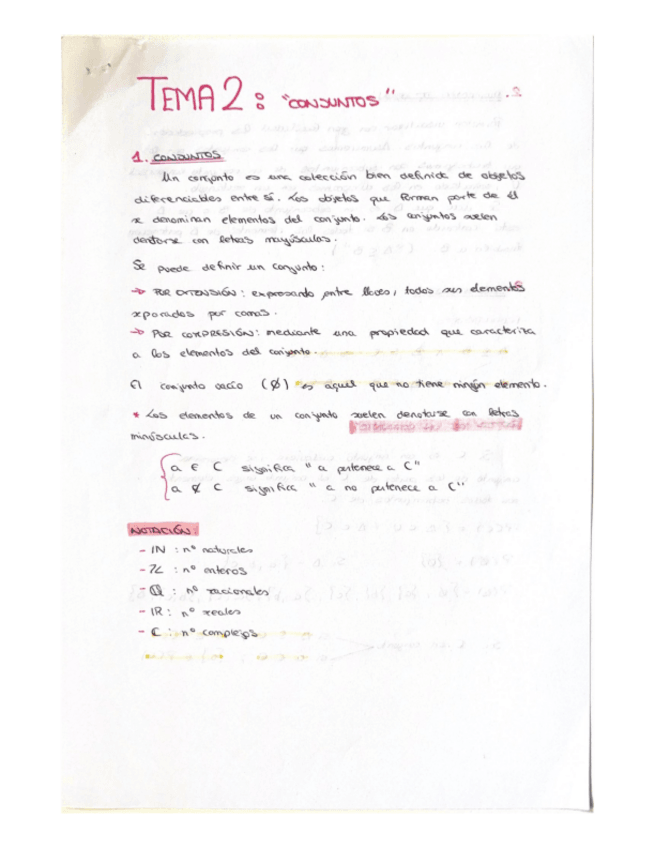 TEMA 2: "CONJUNTOS"
1. CONJUNTOS
Un conjunto es una colección bien definida de objetos
diferenciables entre sí. Los objetos que forman parte de él
se denominan elementos del conjunto. Los conjuntos suelen
denotarse con letras mayúsculas.
Se puede definir un conjunto:
→ POR EXTENSIÓN: expresando, entre llaves, todos sus elementos
separados por comas.
→ POR COMPRESIÓN: mediante una propiedad que caracteriza
a los elementos del conjunto.
El conjunto vacío (Ø) es aquel que no tiene ningún elemento.
* Los elementos de un conjunto suelen denotarse con letras
minúsculas.
a ∈ C significa "a pertenece a C"
a ∉ C significa "a no pertenece a C"
NOTACIÓN:
- ℕ : nº naturales
- ℤ : nº enteros
- ℚ : nº racionales
- ℝ : nº reales
- ℂ : nº complejos